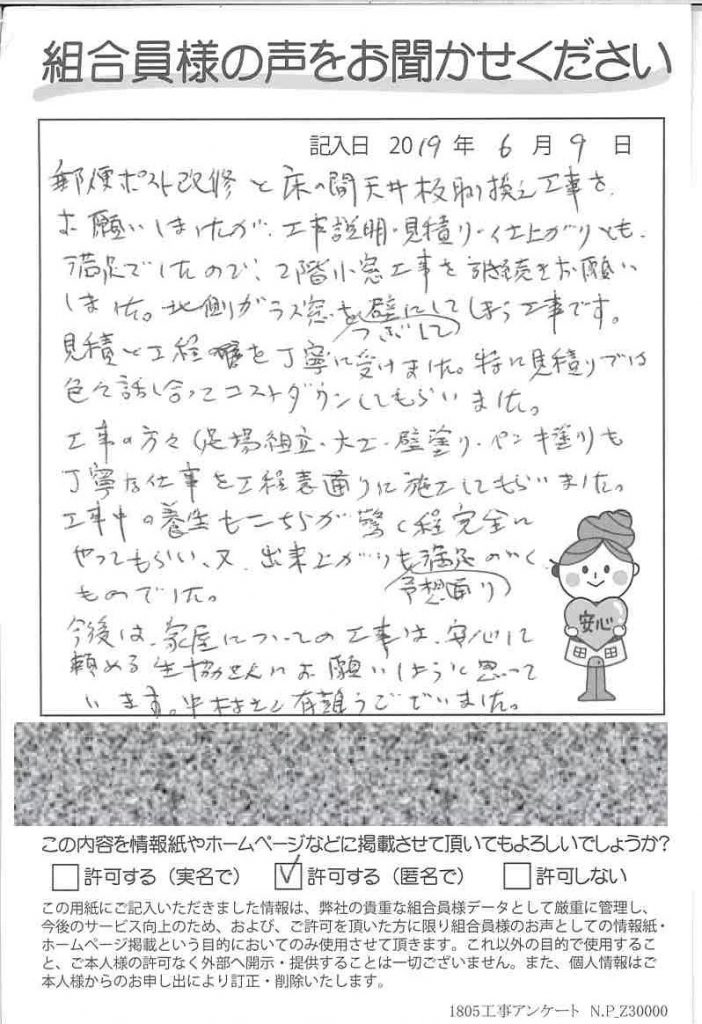 組合員様の声をお聞かせください
記入日 2019年 6月 9日
郵便ポスト改修と床の間天井板取り換え工事を
お願いしましたが、工事説明・見積り・仕上がりとも、
満足でしたので、2階小窓工事を継続をお願い
しました。北側ガラス窓を壁にしてしまう工事です。
つぶして
見積と工程を丁寧に受けました。特に見積りでは
色々話し合ってコストダウンしてもらいました。
工事の方々(足場組立・大工・壁塗り・ペンキ塗り)も
丁寧な仕事を工程表通りに施工してもらいました。
工事中の養生もこちらが驚く程完全に
やってもらい、又、出来上がりも満足のいく
予想通り
ものでした。
今後は、家屋についての工事は、安心して
頼める生協さんにお願いしようと思って
います。中村さん有難うございました。
安心
この内容を情報紙やホームページなどに掲載させて頂いてもよろしいでしょうか?
許可する(実名で) 許可する(匿名で) 許可しない
この用紙にご記入いただきました情報は、弊社の貴重な組合員様データとして厳重に管理し、
今後のサービス向上のため、および、ご許可を頂いた方に限り組合員様のお声としての情報紙・
ホームページ掲載という目的においてのみ使用させて頂きます。これ以外の目的で使用するこ
と、ご本人様の許可なく外部へ開示・提供することは一切ございません。また、個人情報はご
本人様からのお申し出により訂正・削除いたします。
1805工事アンケート N.P_Z30000